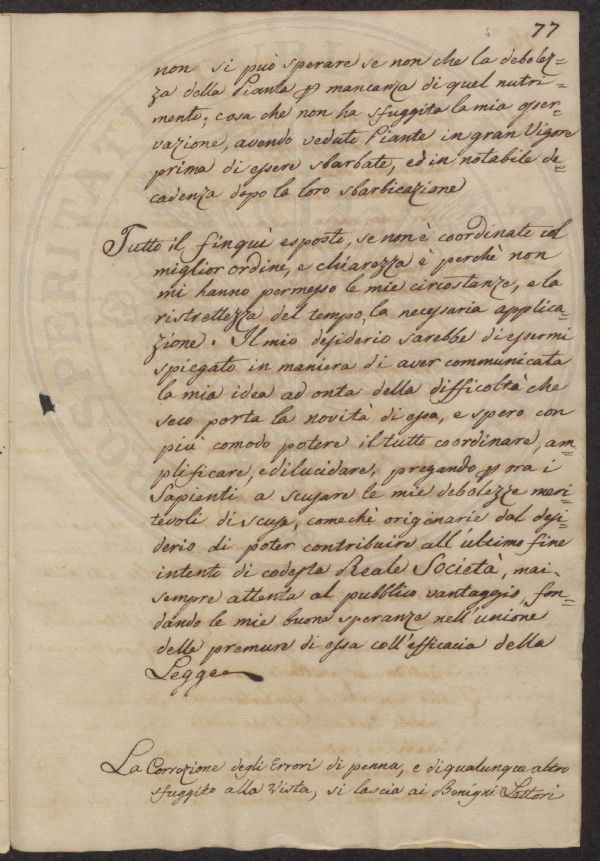 77
non si può sperare se non che la debolez=
za della Pianta p mancanza di quel nutri=
mento; cosa che non ha sfuggita la mia osser=
vazione, avendo vedute Piante in gran Vigore
prima di essere sbarbate, ed in notabile de=
cadenza dopo la loro sbarbicazione
Tutto il finquì esposto, se non è coordinato col
miglior ordine, e chiarezza è perchè non
mi hanno permesso le mie circostanze, e la
ristrettezza del tempo, la necessaria applica=
zione. Il mio desiderio sarebbe di essermi
spiegato in maniera di aver communicata
la mia idea ad onta della difficoltà che
seco porta la novità di essa, e spero con
più comodo potere il tutto coordinare, am=
plificare, e dilucidare, pregando p ora i
Sapienti a scusare le mie debolezze meri=
tevoli di scusa, comechè originarie dal desi=
derio di poter contribuire all'ultimo fine
intento di codesta Reale Società, mai
sempre attenta al pubblico vantaggio, fon=
dando le mie buone speranze nell'unione
delle premure di essa coll'efficacia della
Legge
La Correzione degli Errori di penna, e di qualunque altro
sfuggito alla Vista, si lascia ai Benigni Lettori